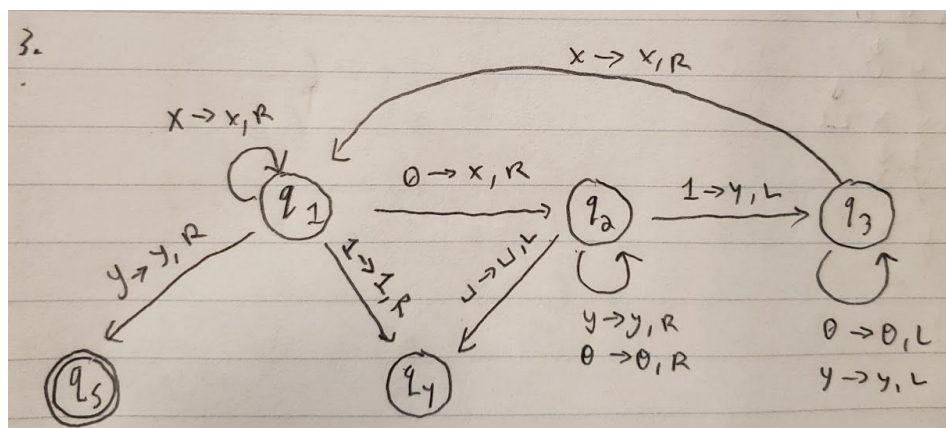 3.
x → x, R
x → x, R
q1
0 → x, R
q2
1 → y, L
q3
y → y, R
1 → 1, R
⊔ → ⊔, L
y → y, R
0 → 0, R
0 → 0, L
y → y, L
q5
q4